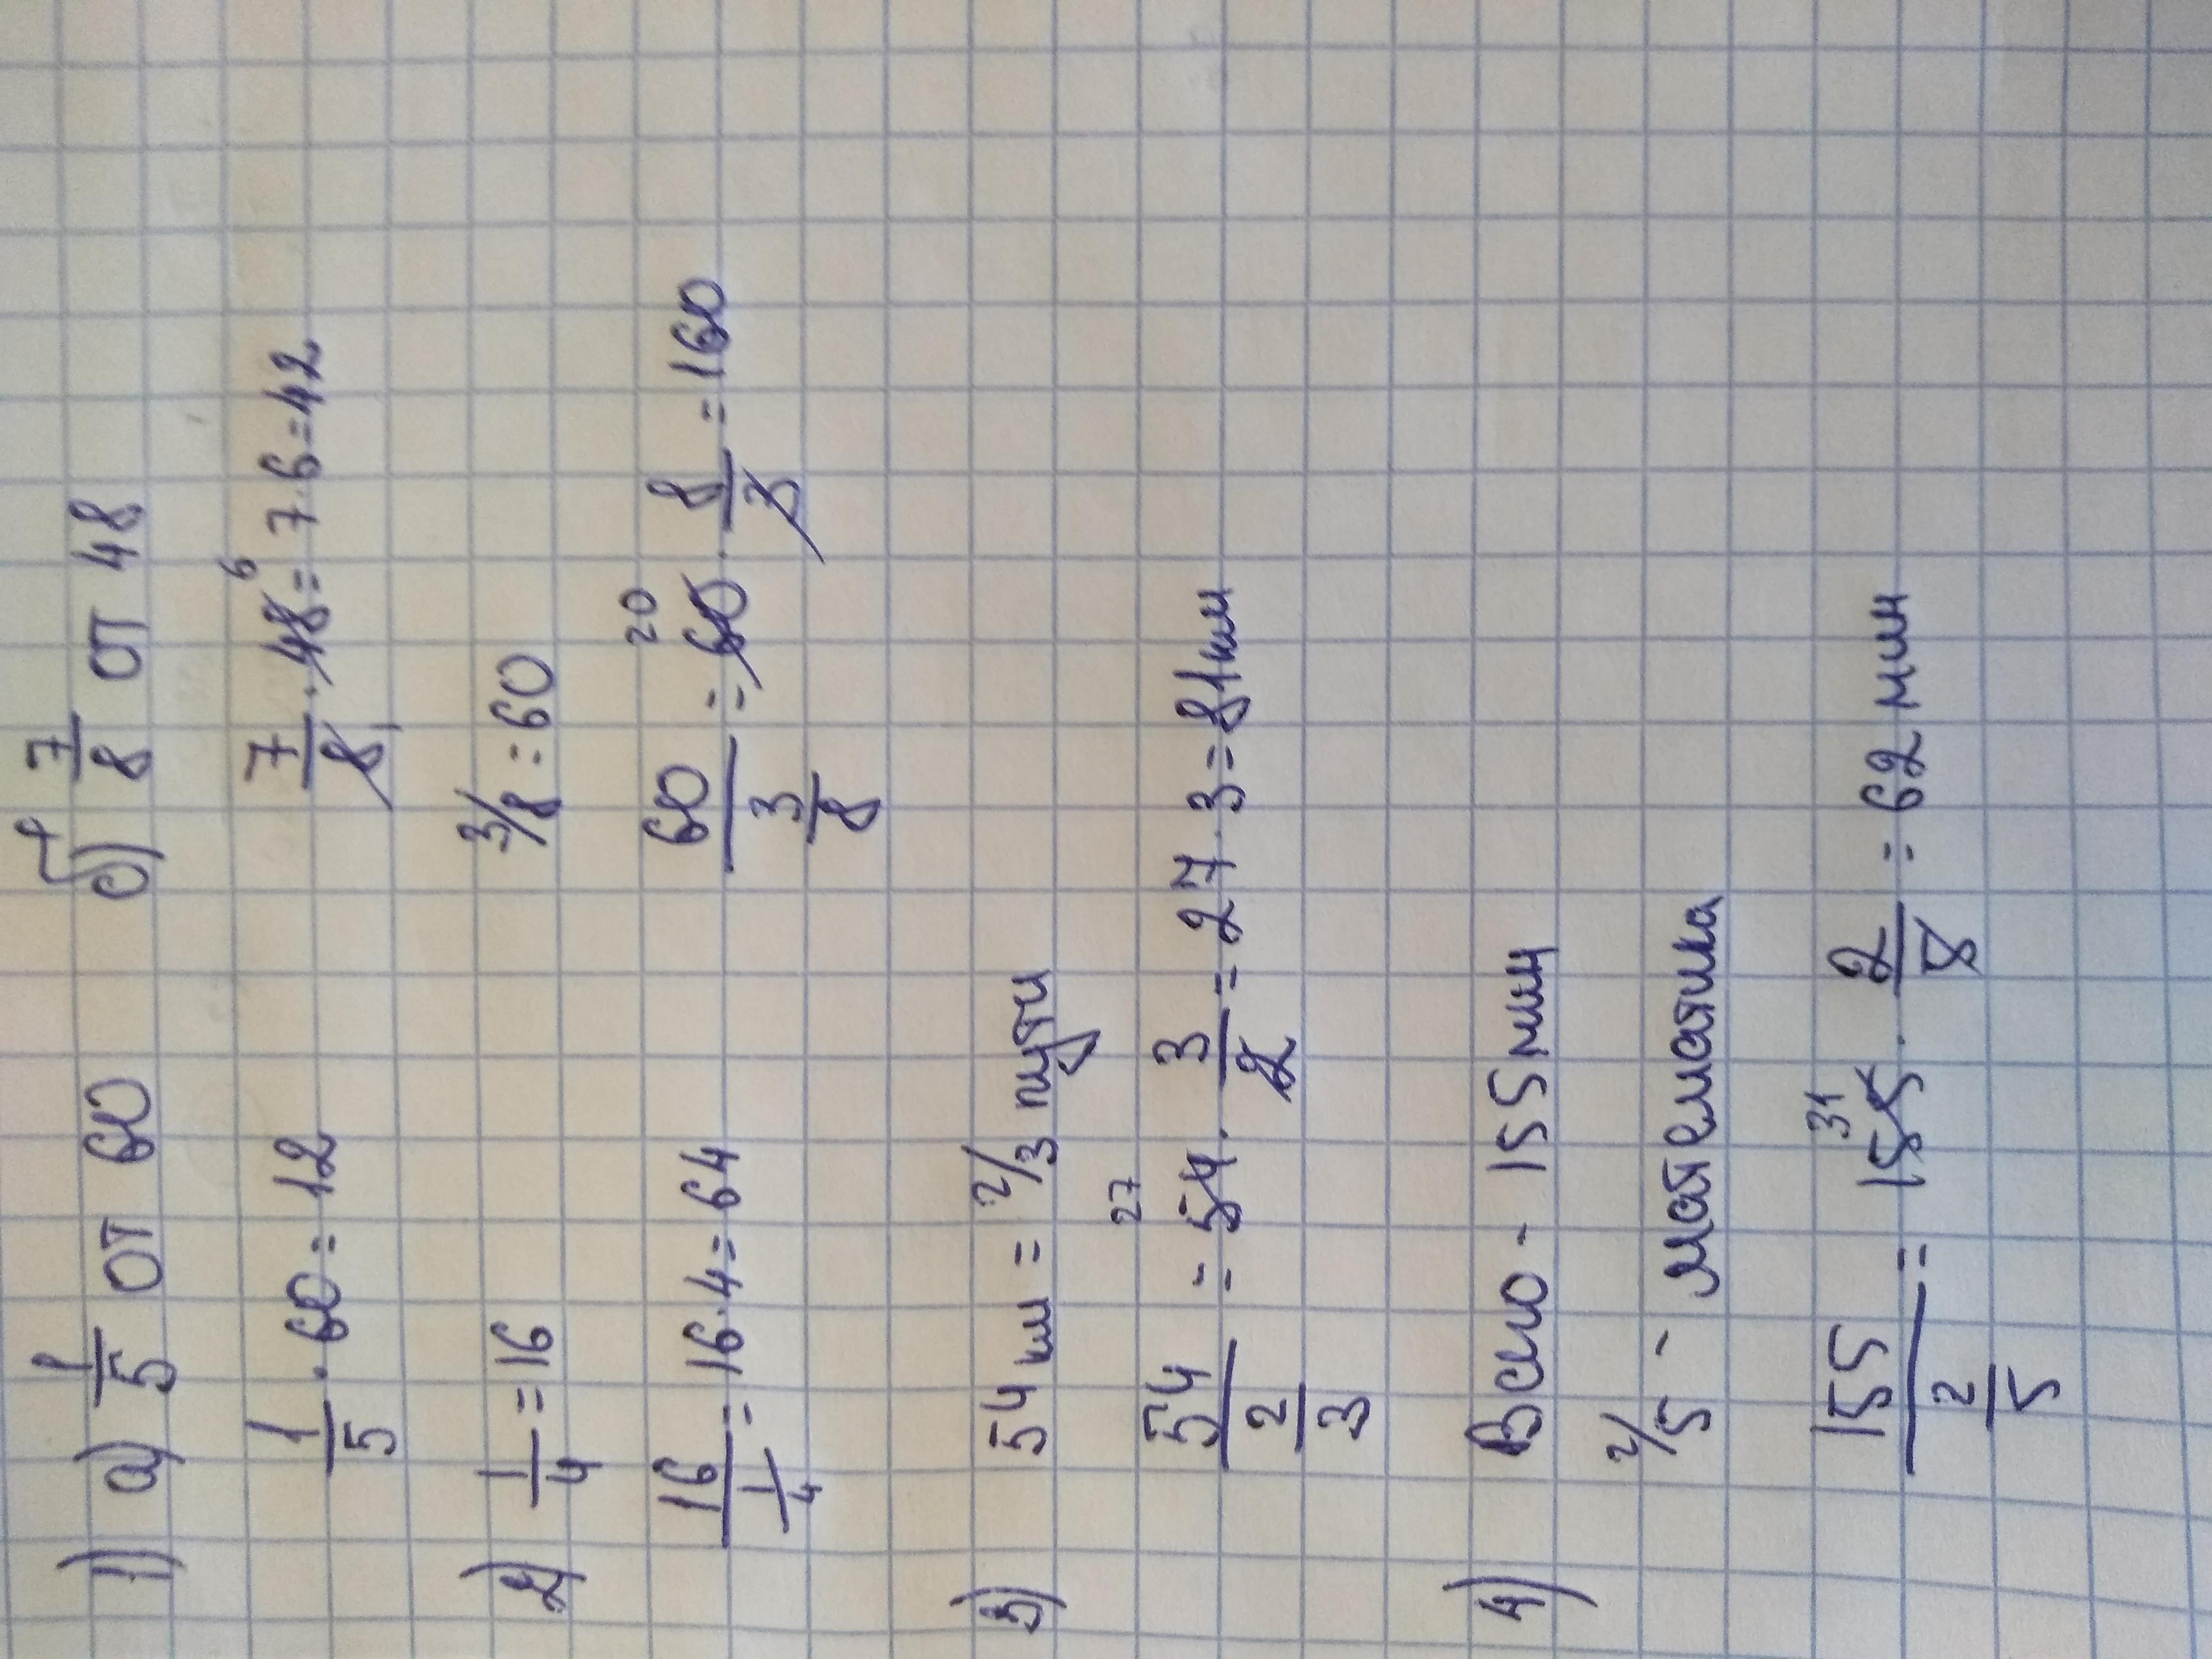 1) а) 1/5 от 60 б) 7/8 от 48
1/5 · 60 = 12 7/8 · 48 = 7·6=42 6 1
2) 1/4 = 16 3/8 = 60
16/(1/4) = 16·4=64 60/(3/8) = 60 · 8/3 = 160 20
3) 54 км = 2/3 пути
54/(2/3) = 54 · 3/2 = 27·3=81 км 27
4) Всего - 155 мин
2/5 - математика
155/(2/5) = 155 · 2/5 = 62 мин 31